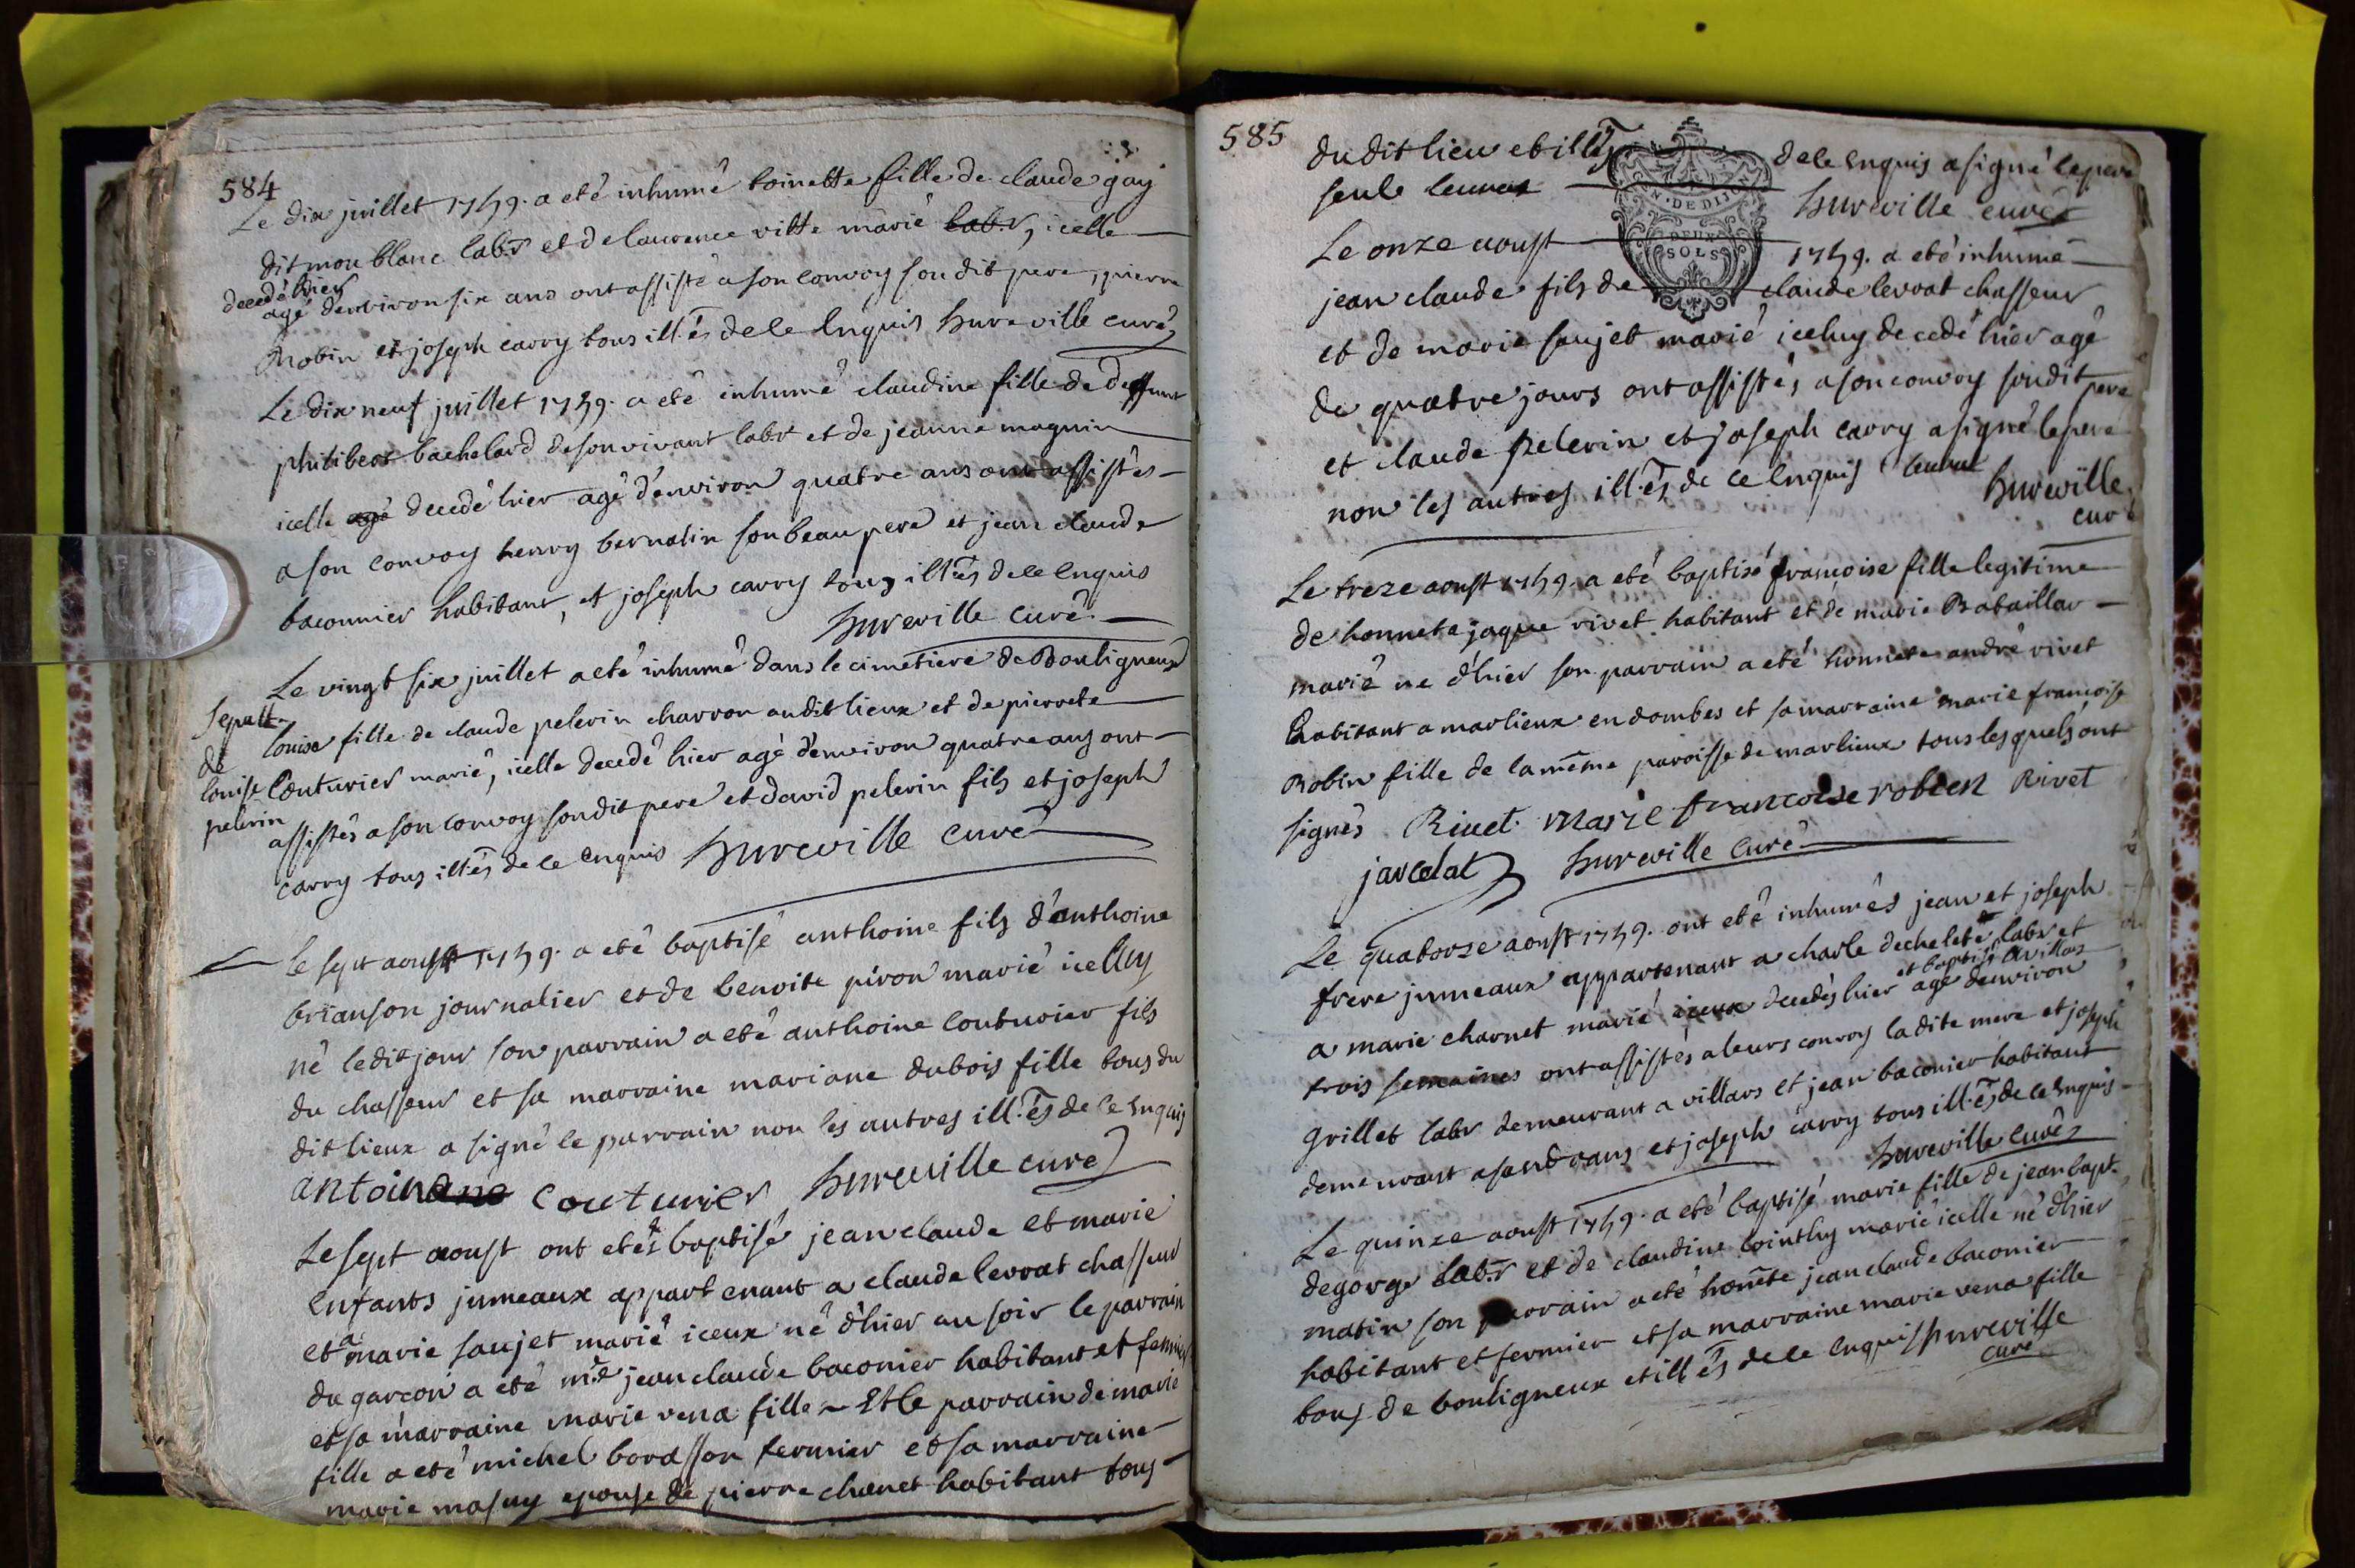 584
Le dix juillet 1759. a eté inhumé toinette fille de claude gay
dit mon blanc labr et de laurence vitte marié labr, icelle
decedé hier
agé denviron six ans ont assisté a son convoy son dit pere, pierre
Robin et joseph carry tous illés de ce Enquis hureville curé
Le dix neuf juillet 1759. a eté inhumé claudine fille de deffunt
philibert bachelard de son vivant labr et de jeanne magnin
icelle agé decedé hier agé d'environ quatre ans ont assistés
a son convoy henry bernalin son beau pere et jean claude
baconnier habitant, et joseph carry tous illés de ce Enquis
hureville curé
Le vingt six juillet a eté inhumé dans le cimetiere de Bouligneux
louise fille de claude pelerin charron au dit lieux et de pierrete
Couturier marié, icelle decedé hier agé d'environ quatre ans ont
assistés a son convoy son dit pere et david pelerin fils et joseph
carry tous illés de ce enquis hureville curé
Sepult.
de
louise
pelerin
le sept aoust 1759. a eté baptisé anthoine fils d'anthoine
brianson journalier et de benoite piron marié icelluy
né le dit jour son parrain a eté anthoine couturier fils
du chasseur et sa marraine mariane dubois fille tous du
dit lieux a signé le parrain non les autres illés de ce Enquis
antoine couturier hureville curé
Le sept aoust ont etés baptisé jean claude et marie
Enfants jumeaux appartenant a claude levrat chasseur
et a marie saujet marié iceux né d'hier au soir le parrain
du garçon a eté mre jean claude baconier habitant et fermier
et sa marraine marie vena fille Et le parrain de marie
fille a eté michel borasson fermier et sa marraine
marie masuy epouse de pierre chanet habitant tous
585
du dit lieu et illés de ce Enquis a signé le pere
seul levrat hureville curé
DEUX
SOLS
Le onze aoust 1759. a eté inhumé
jean claude fils de claude levrat chasseur
et de marie saujet marié iceluy decedé hier agé
de quatre jours ont assistés a son convoy son dit pere
et claude pelerin et joseph carry a signé le pere
non les autres illés de ce Enquis levrat
hureville
curé
Le treze aoust 1759. a eté baptisé françoise fille legitime
de honnete jaque rivet habitant et de marie Bataillar
marié ne d'hier son parrain a eté honnete andré rivet
habitant a marlieux en dombes et sa marraine marie françoise
Robin fille de la même paroisse de marlieux tous lesquels ont
signés Rivet marie francoise robien Rivet
jarcelat hureville curé
Le quatorze aoust 1759. ont eté inhumés jean et joseph
frere jumeaux appartenant a charle dechelete labr et
a marie charnet marié iceux decedés hier agé denviron
et baptisé a villars
trois semaines ont assistés a leurs convoy la dite mere et joseph
grillet labr demeurant a villars et jean baconier habitant
demeurant a sandrans et joseph carry tous illés de ce Enquis
hureville curé
Le quinze aoust 1759. a eté baptisé marie fille de jean bapt.
degorge labr et de claudine cointhy marié icelle né d'hier
matin son parrain a eté honete jean claude baconier
habitant et fermier et sa marraine marie vena fille
tous de bouligneux et illés de ce Enquis hureville
curé